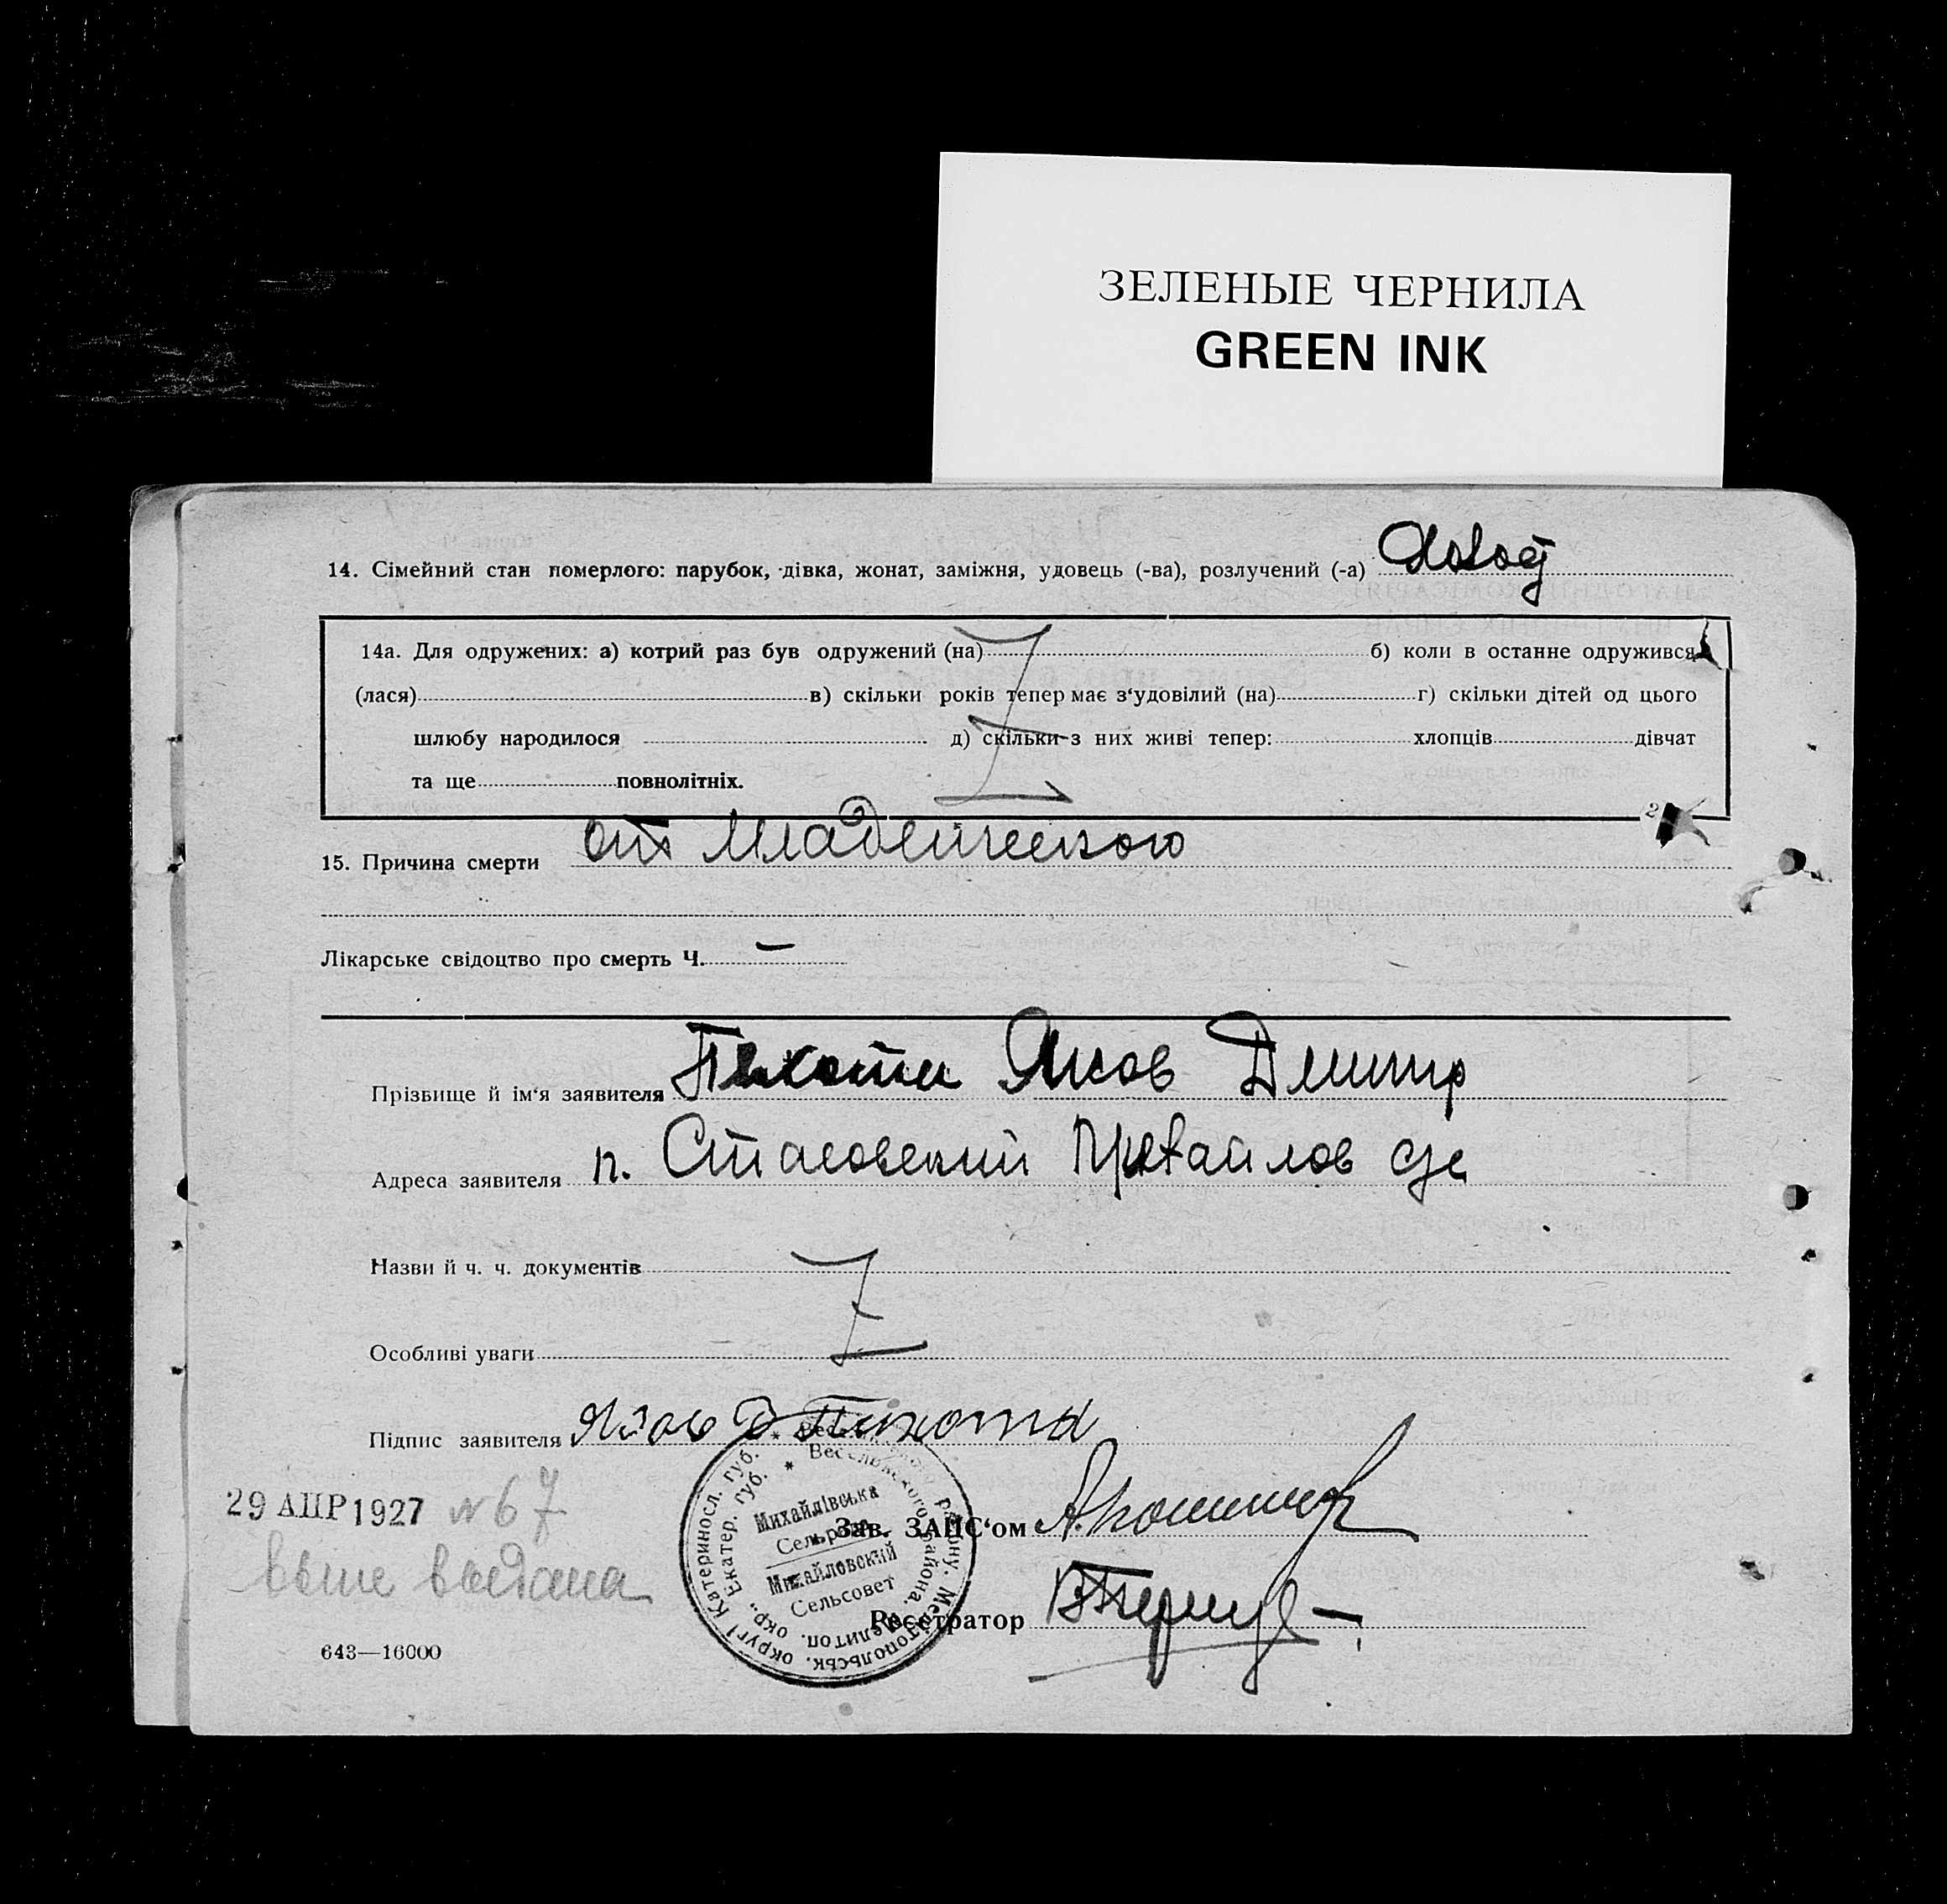 ЗЕЛЕНЫЕ ЧЕРНИЛА
GREEN INK
14. Сімейний стан померлого: парубок, дівка, жонат, заміжня, удовець (-ва), розлучений (-а)
14а. Для одружених: а) котрий раз був одружений (на) б) коли в останне одружився
(лася) в) скільки років тепер має з‘удовілий (на) г) скільки дітей од цього
шлюбу народилося д) скільки з них живі тепер: хлопців дівчат
та ще повнолітніх.
15. Причина смерти от младенческого
Лікарське свідоцтво про смерть Ч. —
Прізвище й ім‘я заявителя Яков Дмитр
Адреса заявителя п. Стасовский
Назви й ч. ч. документів
Особливі уваги
Підпис заявителя Яков Д Пихота
29 АПР 1927 № 67
Зав. ЗАПС‘ом
Михайлівська
Сельрада
Михайловский
Сельсовет
Реєстратор
643—16000